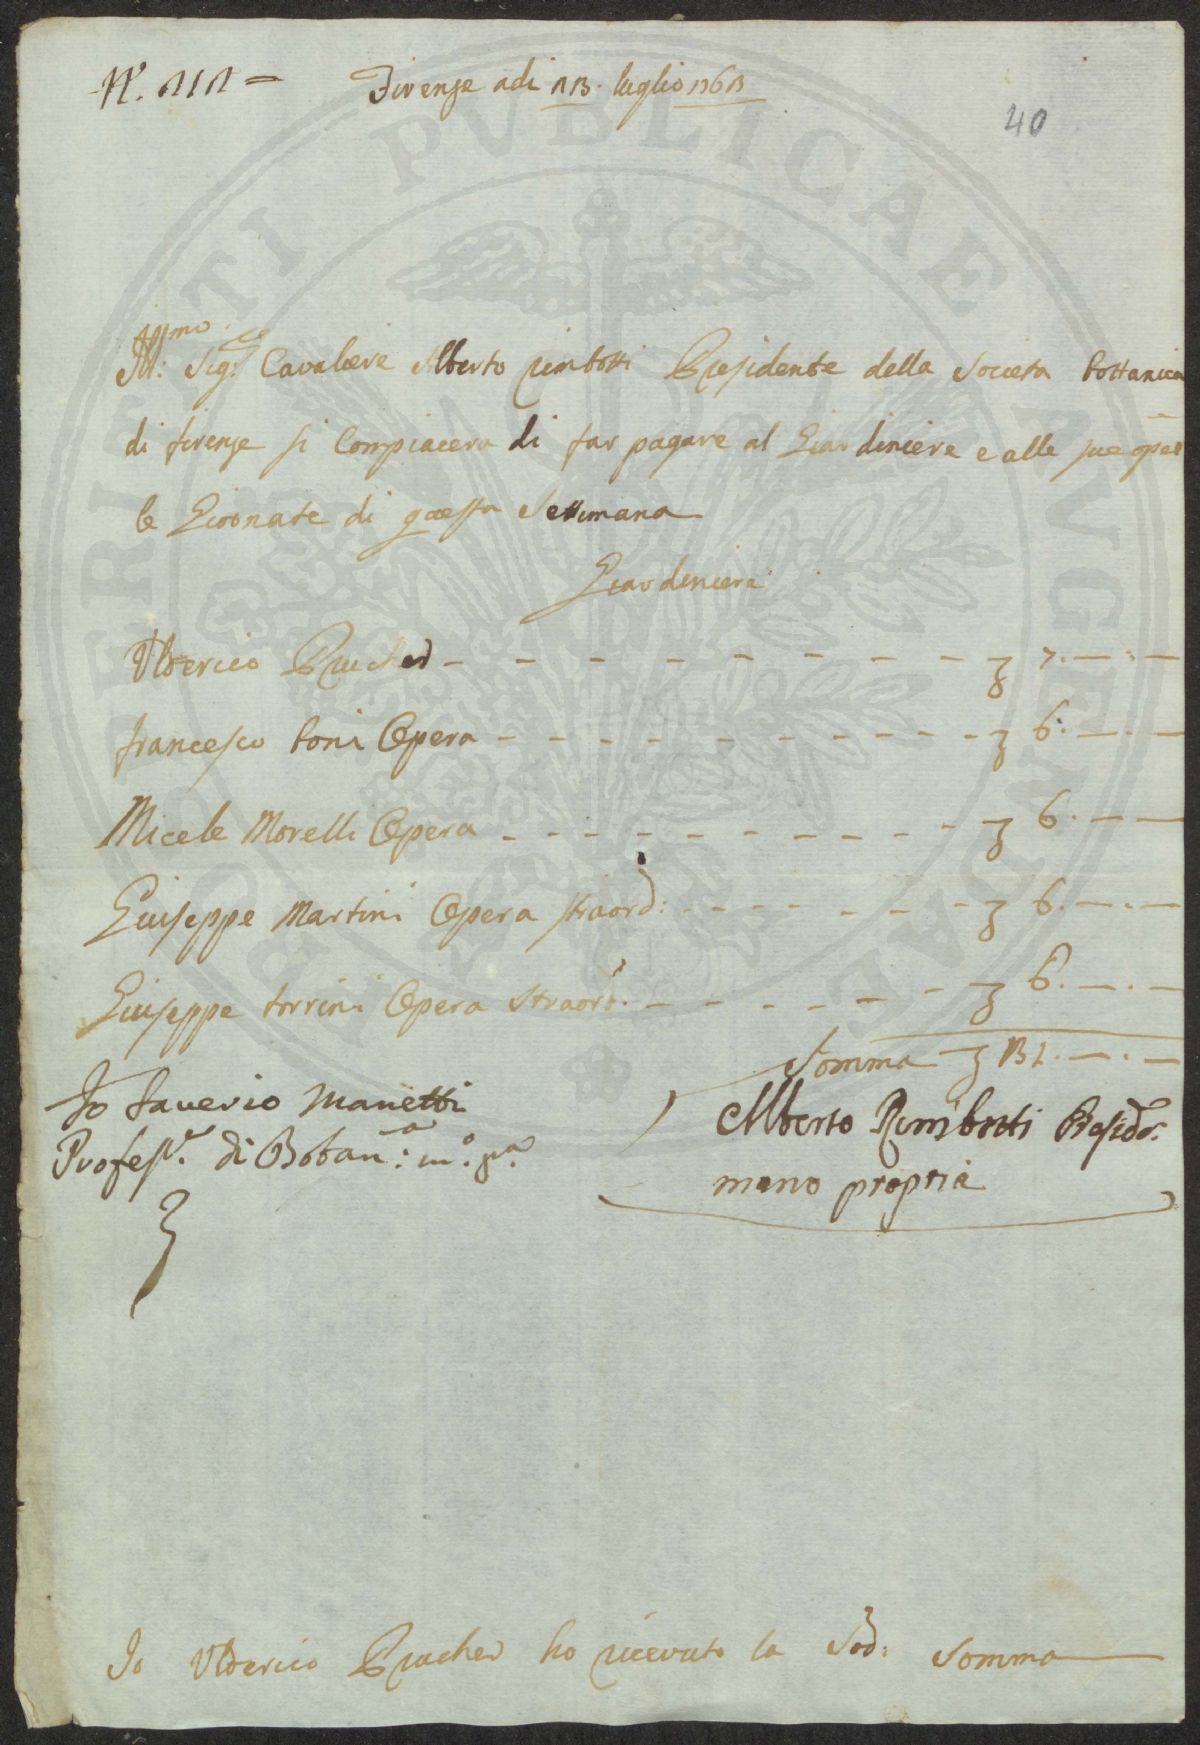 Firenze adi 13. luglio 1763
40
Ill:mo Sig:re Cavalere Alberto Rimbotti Presidente della Societa bottanica
di firenze si Compiacera di far pagare al Giardiniere e alle sue opere
le Giornate di questa Settimana
Giardiniere
Ulderico Prucher 7.
francesco boni Opera 6:
Micele Morelli Opera 6.
Giuseppe Martini Opera straord: 6.
Giuseppe torrini Opera Straord. 6.
Somma 31.
Io Saverio Manetti
Profess.r di Botan:ca m.o p.a
Alberto Rimbotti Presid.
mano propria
Io Ulderico Prucher ho ricevuto la Sod: Somma